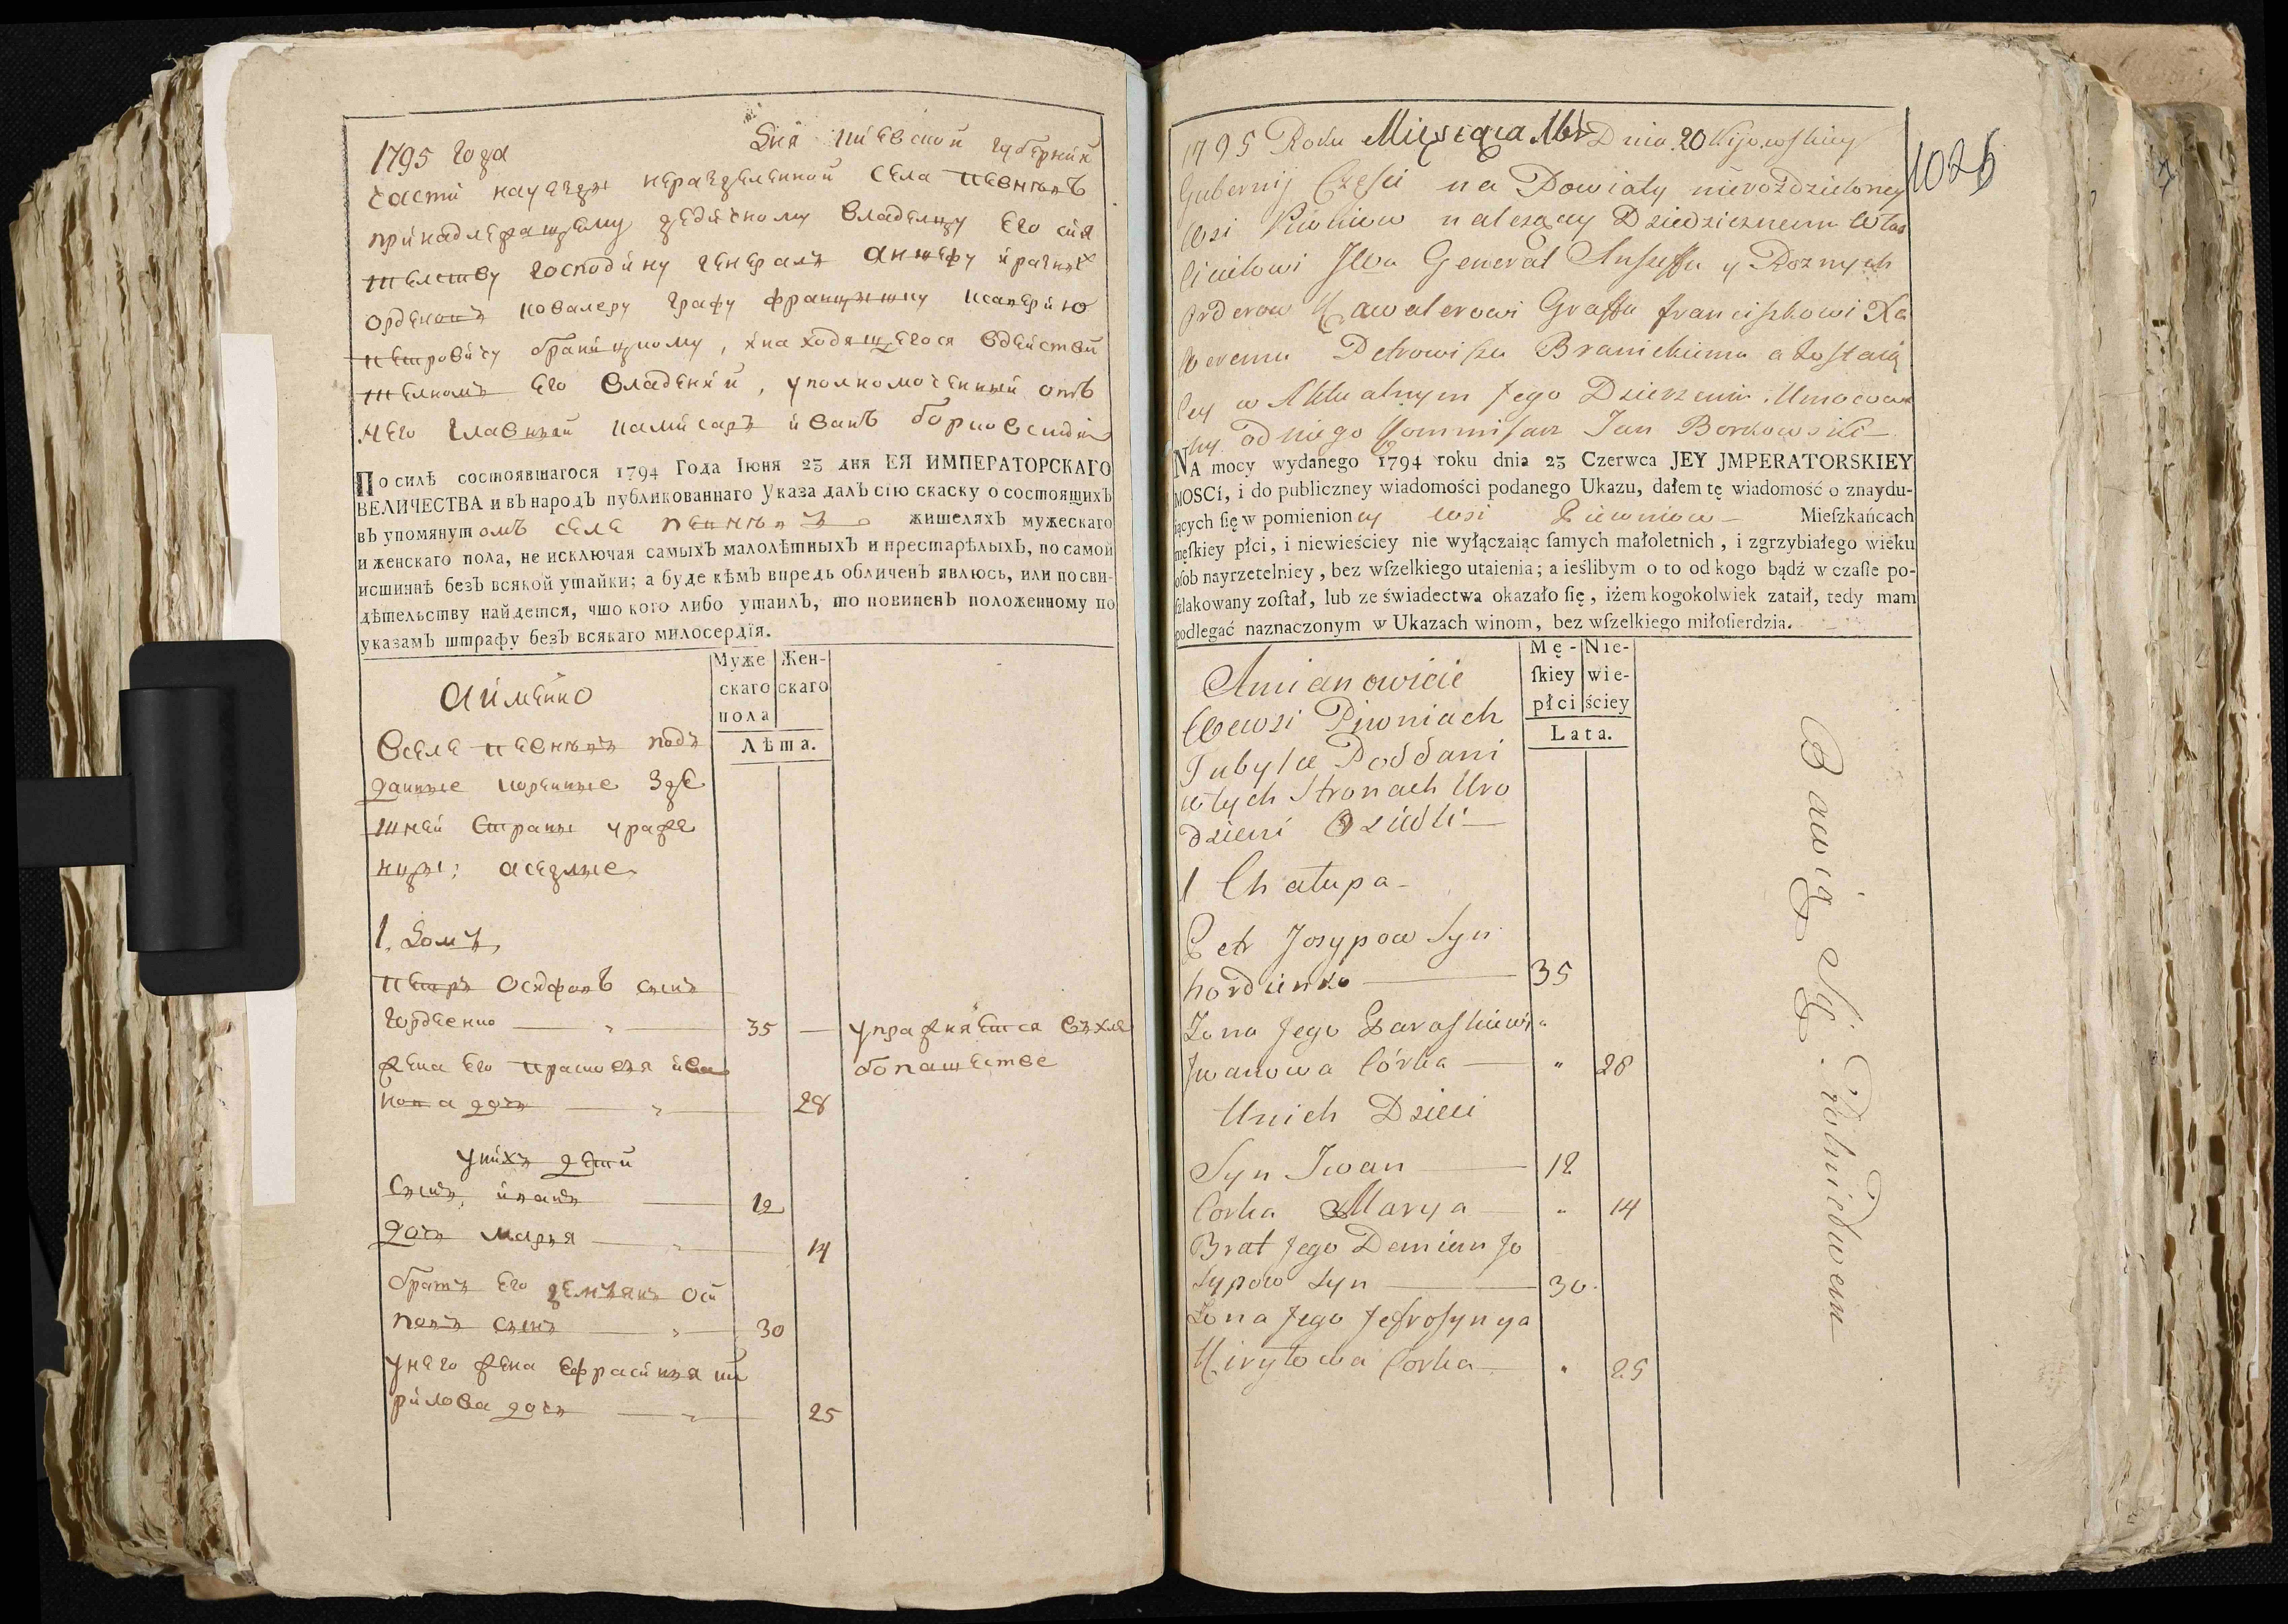 1795 года Дня киевской губернии
части науезды неразделенной села певневъ
принадлежащему дедичному владелцу его сия
телству господину генералъ аншефу и разныхъ
орденовъ ковалеру графу францышку ксаверию
петровичу браницкому, и находящегося вдействи
телномъ его владении, уполномоченный отъ
него главный камисаръ иванъ борковский
По силѣ состоявшагося 1794 Года Іюня 23 дня ЕЯ ИМПЕРАТОРСКАГО
ВЕЛИЧЕСТВА и въ народъ публикованнаго Указа далъ сію скаску о состоящихъ
въ упомянутомъ селе певневъ жителяхъ мужескаго
и женскаго пола, не исключая самыхъ малолѣтныхъ и престарѣлыхъ, по самой
истиннѣ безъ всякой утайки; а буде кѣмъ впредь обличенъ явлюсь, или по сви-
дѣтельству найдется, что кого либо утаилъ, то повиненъ положенному по
указамъ штрафу безъ всякаго милосердія.
Муже Жен-
скаго скаго
пола
Лѣта.
Аимѣнно
Вселе певневъ подъ
данные коренные зде
шней страны урожѣ
нцы: аседлые
1. Домъ
петръ осифовъ сынъ
гордеенко 35 — упражняется въ хле
жена его прасковья ива бопашестве
нова дочь 28
унихъ дети
сынъ иванъ 12
дочь марья 14
братъ его демьянъ оси
повъ сынъ 30
унего жена ефрасинья ки
рилова дочь 25
1795 Roku Miesiąca Mbr Dnia 20 Kijowskiey
Gubernij Części na Powiaty nierozdzieloney
Wsi Piwniow należącey Dziedzicznemu Wła
ścicielowi JWu Generał Anszeffu y Roznych
Orderow Kawalerowi Graffu franciszkowi Xa
weremu Petrowiczu Branickiemu a zostaią
cey w Aktualnym Jego Dzierzeniu. Umocowa
ny od niego Kommisarz Jan Borkowski
NA mocy wydanego 1794 roku dnia 23 Czerwca JEY JMPERATORSKIEY
MOSCi, i do publiczney wiadomości podanego Ukazu, dałem tę wiadomość o znaydu-
iących się w pomienioney wsi Piewniow — Mieſzkańcach
męſkiey płci, i niewieściey nie wyłączaiąc ſamych małoletnich, i zgrzybiałego wieku
oſob nayrzetelniey, bez wſzelkiego utaienia; a ieślibym o to od kogo bądź w czaſie po-
ſzlakowany zoſtał, lub ze świadectwa okazało ſię, iżem kogokolwiek zataił, tedy mam
podlegać naznaczonym w Ukazach winom, bez wſzelkiego miłoſierdzia.
Mę- Nie-
ſkiey wie-
płci ściey
Lata.
Amianowicie
Wewsi Piwniach
Tubylce Poddani
wtych Stronach Uro
dzieni Osiedli
1 Chałupa
Petr Josypow Syn
hordienko 35
Zona Jego Paraskiewia
Jwanowa Córka " 28
Unich Dzieci
Syn Jwan 12
Corka Marya " 14
Brat Jego Demian Jo
sypow Syn 30
Zona Jego Jefrosynya
Kiryłowa Corka " 25
Bawią Się Rolnictwem
1025